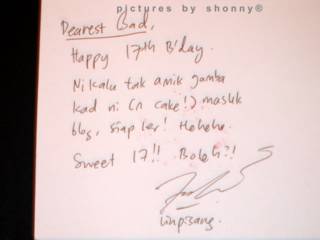 pictures by shonny®
Dearest Bad,
Happy 17th B'day.
Ni kalu tak amik gamba
kad ni (n cake!) masuk
blog, siap ler! Hehehe
Sweet 17!! Boleh?!